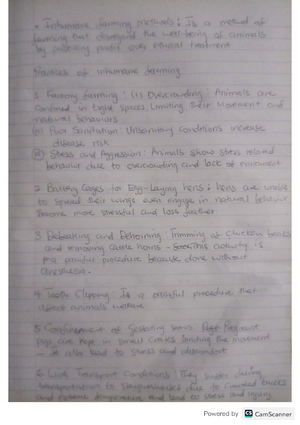 • Inhumane farming methods: Is a method of
farming that disregard the well-being of animals
by prioritizing profit over ethical treatment
Practices of inhumane farming
1. Factory farming: (i) Overcrowding: Animals are
confined in tight spaces, limiting their movement and
natural behaviors
(ii) Poor Sanitation: Unsanitary conditions increase
disease risk
(iii) Stress and Aggression: Animals show stress related
behavior due to overcrowding and lack of enrichment
2. Battery Cages to Egg-Laying hens: hens are unable
to spread their wings even engage in natural behavior
become more stressful and loss feather
3. Debeaking and Dehorning: Trimming of chicken beaks
and removing cattle horns - activity is
a painful procedure because done without
anesthesia.
4. Tooth Clipping: Is a painful procedure that
affect animals' welfare
5. Confinement of Gestating sows: Pregnant
pigs are kept in small crates limiting the movement
- It also lead to stress and discomfort
6. Live Transport Conditions: They suffer during
transportation to slaughterhouses due to crowded trucks
and extreme temperature and lead to stress and injury
Powered by CS CamScanner